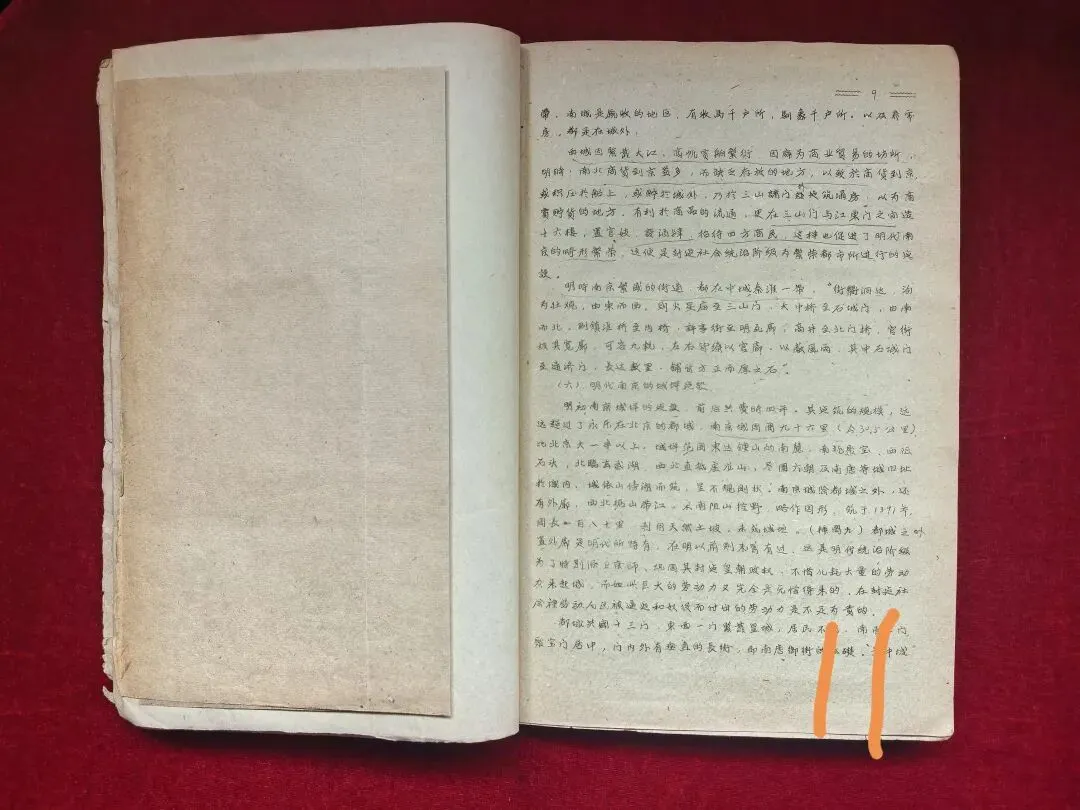 9
带，南城是牧的地区，有牧马千户所，驯象千户所，以及养市
房，都是在城外，
西城因紧靠大江，商帆官舶繁衍 因辟为商业贸易的场所，
明时，南北商货到京益多，而缺乏存放的地方，以致於商货到京，
或积压於船上，或於城外，乃於三山门建筑房，以为商
贾时货的地方，有利於商品的流通，更在三山门与江东门之间造
十六楼，置官妓，设酒肆，招待四方商民，这样也促进了明代南
京的畸形繁荣，这便是封建社会统治阶级为繁荣都市所进行的建
设。
明时南京繁盛的街道，都在中城秦淮一带，"街衢洞达，沟
为壮观，由东而西，则火星庙至三山门，大中桥至石城门，由南
而北，则镇淮桥至内桥，评事街至明瓦廊，高井至北门桥，官街
极其宽廓，可容九轨，左右皆缭以官廊，以蔽风雨，其中石城门
至通济门，长达数里，铺官方正而厚之石"。
（六）明代南京的城垣
明初南京城垣的，前后共费时四年。其建筑的规模，远
远超过了永乐在北京的都城，南京城周围九十六里（合30.5公里）
比北京大一半以上。城垣范围东达钟山的南麓，南聚宝，西
石头，北临玄武湖，西北直抵卢龙山，尽围六朝及南唐等城旧址
於城内，城依山傍湖而筑，呈不规则状。南京城除都城之外，还
有外廓，西北据山带江，东南阻山控野，略作园形，筑于1391年，
周长一百八十里 利用天然土坡，垒筑城墙。（附图九）都城之外
置外廓是明代所特有，在明以前则未曾有过，这是明代统治阶级
为了特别防卫京师、巩固其封建皇朝政权，不惜耗大量的劳动
力来起城，而如此巨大的劳动力又完全是无偿得来的，在封建社
会裡劳动人民被逼迫和奴役而付出的劳动力是不足为贵的。
都城共辟十三门，东西一门紧靠皇城，居民不，南面门
聚宝门居中，门内外有垂直的长街，即南唐御街的。中城